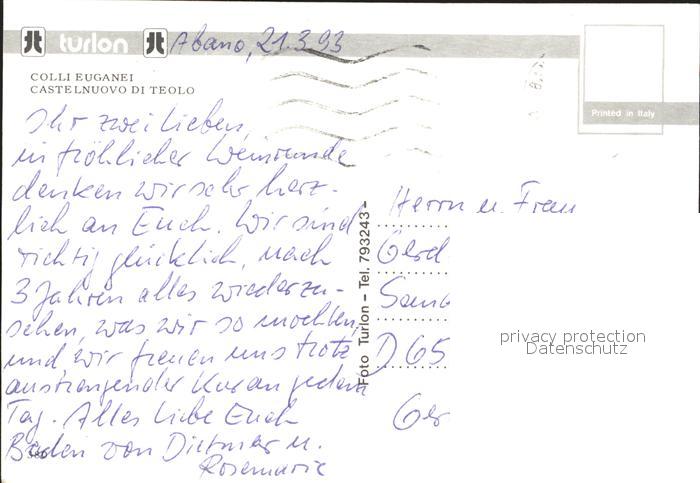 turlon
Abano, 21.3.93
COLLI EUGANEI
CASTELNUOVO DI TEOLO
Printed in Italy
Ihr zwei Lieben,
in fröhlicher Weinrunde
denken wir sehr herz-
lich an Euch. Wir sind
richtig glücklich, nach
3 Jahren alles wiederzu-
sehen, was wir so mochten,
und wir freuen uns trotz
anstrengender Kur an jedem
Tag. Alles Liebe Euch
Baden von Dietmar u.
Rosemarie
Foto Turlon - Tel. 793243 -
Herrn u. Frau
Gerd
D 65
Ger
privacy protection
Datenschutz